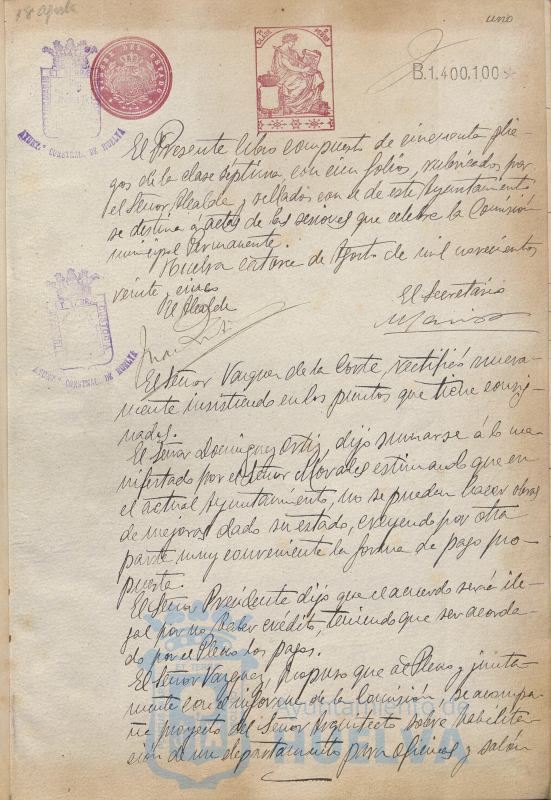 18 agosto
uno
TIMBRE DEL ESTADO
B.1.400.100
AYUNTº CONSTNAL. DE HUELVA
El Presente libro compuesto de cincuenta plie-
gos de la clase séptima, con cien folios, rubricados por
el Señor Alcalde y sellados con el de este Ayuntamiento
se destina á actas de las sesiones que celebre la Comisión
municipal Permanente.
Huelva catorce de Agosto de mil novecientos
veinte cinco
El Alcalde
El Secretario
AYUNTº CONSTNAL. DE HUELVA
El Señor Vazquez de la Corte rectificó nueva-
mente insistiendo en los puntos que tiene consig-
nados.
El Señor Dominguez Ortiz, dijo sumarse á lo ma-
nifestado por el Señor Morales estimando que en
el actual Ayuntamiento, no se pueden hacer obras
de mejoras dado su estado, creyendo por otra
parte muy conveniente la forma de pago pro-
puesta.
El Señor Presidente dijo que el acuerdo seria ile-
gal por no haber crédito, teniendo que ser acorda-
do por el Pleno los pagos.
El Señor Vazquez, propuso que al Pleno y junta-
mente con el informe de la Comisión, se acompa-
ñe proyecto del Señor Arquitecto sobre habilita-
ción de un departamento para oficinas y salón
Ayuntamiento de
HUELVA